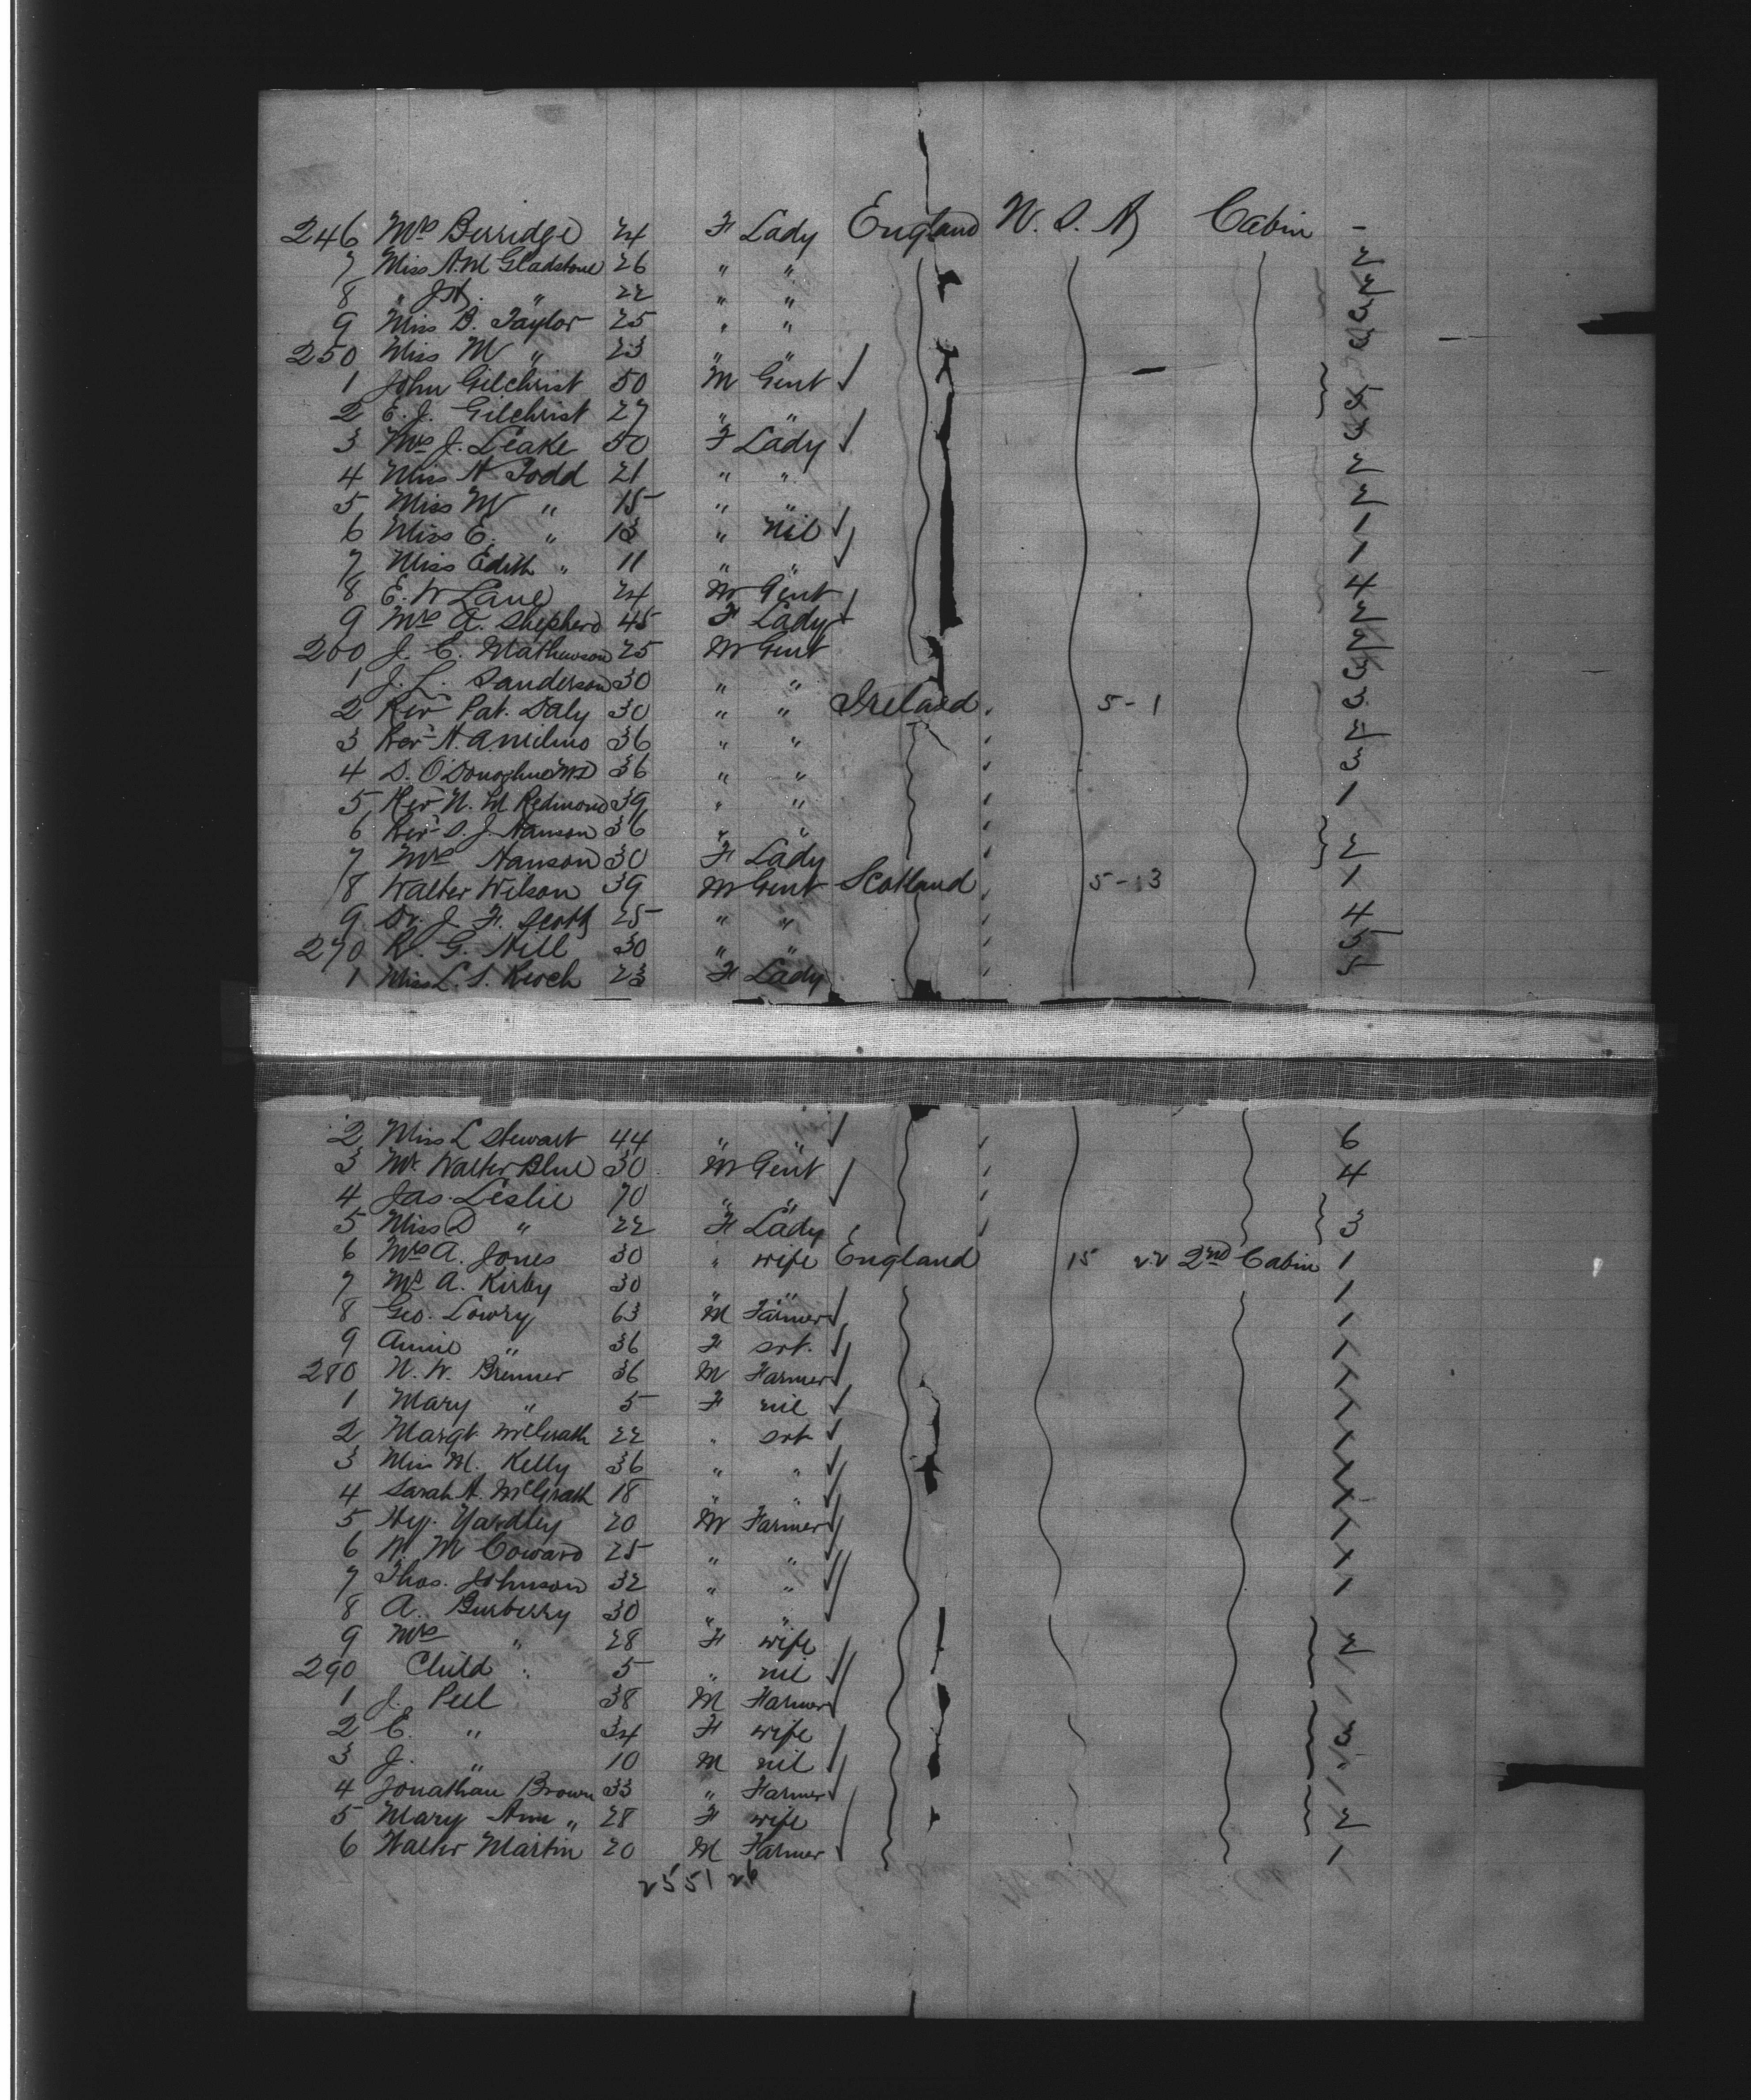 246 Mrs Berridge 24 F Lady England U. S. A Cabin -
7 Miss A.M Gladstone 26 " " 2
8 " " 22 " " 2
9 Miss B. Taylor 25 " " 3
250 Miss M " 23 " "
1 John Gilchrist 50 M Gent
2 E. J. Gilchrist 27 " "
3 Mrs J. Leake 50 F Lady 3
4 Miss H Todd 21 " " 2
5 Miss M " 15 " " 2
6 Miss E. " 13 " nil 1
7 Miss Edith " 11 " " 1
8 E. W Lane 24 M Gent 4
9 Mrs A. Shepherd 45 F Lady 2
260 J. E. Mathewson 25 M Gent 2
1 J. L. Sanderson 30 " " 3
2 Revd Pat. Daly 30 " " Ireland 5-1 3
3 Revd H. A. 36 " " 2
4 D. O'Donoghue MD 36 " " 3
5 Revd N. M Redmond 39 " " 1
6 Revd S. J. Hanson 36 " "
7 Mrs Hanson 30 F Lady 2
8 Walter Wilson 39 M Gent Scotland 5-13 1
9 Dr. J. F. Scott 25 " " 4
270 R. G. Hill 30 " " 3
1 Miss L. S. 23 F Lady 5
2 Miss L Stewart 44 " " 6
3 Mr Walter Blue 30 M Gent 4
4 Jas. Leslie 70 " "
5 Miss D " 22 F Lady 3
6 Mrs A. Jones 30 " wife England 15 22 2nd Cabin 1
7 Mrs A. Kirby 30 " " 1
8 Geo. Lowry 63 M Farmer 1
9 Annie " 36 F srt. 1
280 N. W. Brenner 36 M Farmer 1
1 Mary " 5 F nil 1
2 Margt McGrath 22 " srt 1
3 Miss M. Kelly 36 " " 1
4 Sarah A. McGrath 18 " " 1
5 Hy. Yardley 20 M Farmer 1
6 W. M Coward 25 " " 1
7 Thos. Johnson 32 " " 1
8 A. Burberry 30 " "
9 Mrs " 28 F wife 2
290 Child " 5 " nil 1
1 J. Peel 38 M Farmer 1
2 E. " 34 F wife 3
3 J. " 10 M nil 1
4 Jonathan Brown 33 " Farmer 1
5 Mary Ann " 28 F wife 2
6 Walter Martin 20 M Farmer 1
25 51 26